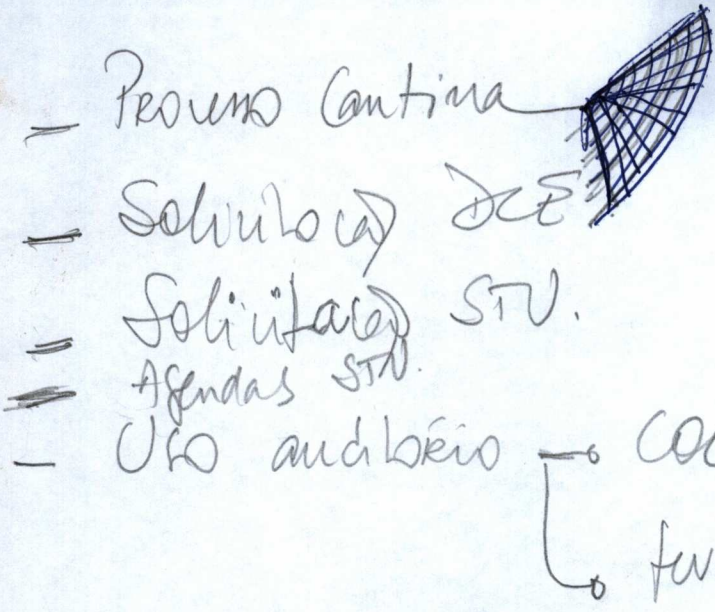 - Processo Cantina
- Solicitação DCE
- Solicitação STU.
- Agendas STU.
- Uso auditório